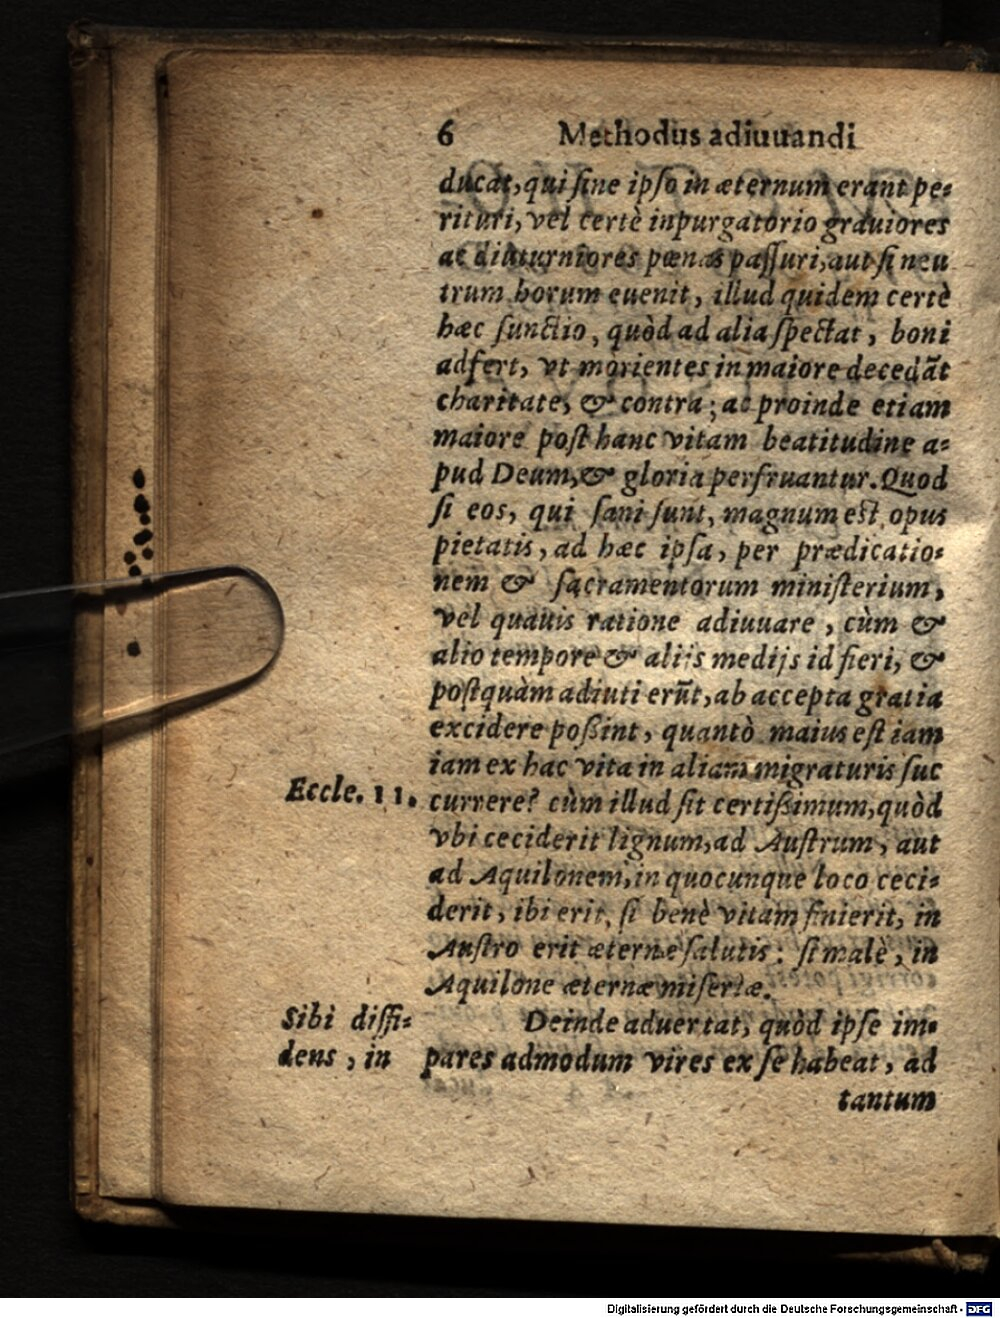 6 Methodus adiuuandi
ducat, qui ſine ipſo in æternum erant pe-
rituri, vel certè in purgatorio grauiores
ac diuturniores pœnas paſſuri, aut ſi neu
trum horum euenit, illud quidem certè
hæc functio, quòd ad alia ſpectat, boni
adfert, vt morientes in maiore decedãt
charitate, & contra; ac proinde etiam
maiore poſt hanc vitam beatitudine a-
pud Deum, & gloria perfruantur. Quod
ſi eos, qui ſani ſunt, magnum eſt opus
pietatis, ad hæc ipſa, per prædicatio-
nem & ſacramentorum miniſterium,
vel quauis ratione adiuuare, cùm &
alio tempore & alijs medijs id fieri, &
poſtquàm adiuti erũt, ab accepta gratia
excidere poßint, quantò maius eſt iam
iam ex hac vita in aliam migraturis ſuc
Eccle. 11.
currere? cùm illud ſit certißimum, quòd
vbi ceciderit lignum, ad Auſtrum, aut
ad Aquilonem, in quocunque loco ceci-
derit, ibi erit, ſi benè vitam finierit, in
Auſtro erit æternæ ſalutis: ſi malè, in
Aquilone æternæ miſeriæ.
Sibi diffi-
dens, in
Deinde aduertat, quòd ipſe im-
pares admodum vires ex ſe habeat, ad
tantum
Digitalisierung gefördert durch die Deutsche Forschungsgemeinschaft - DFG